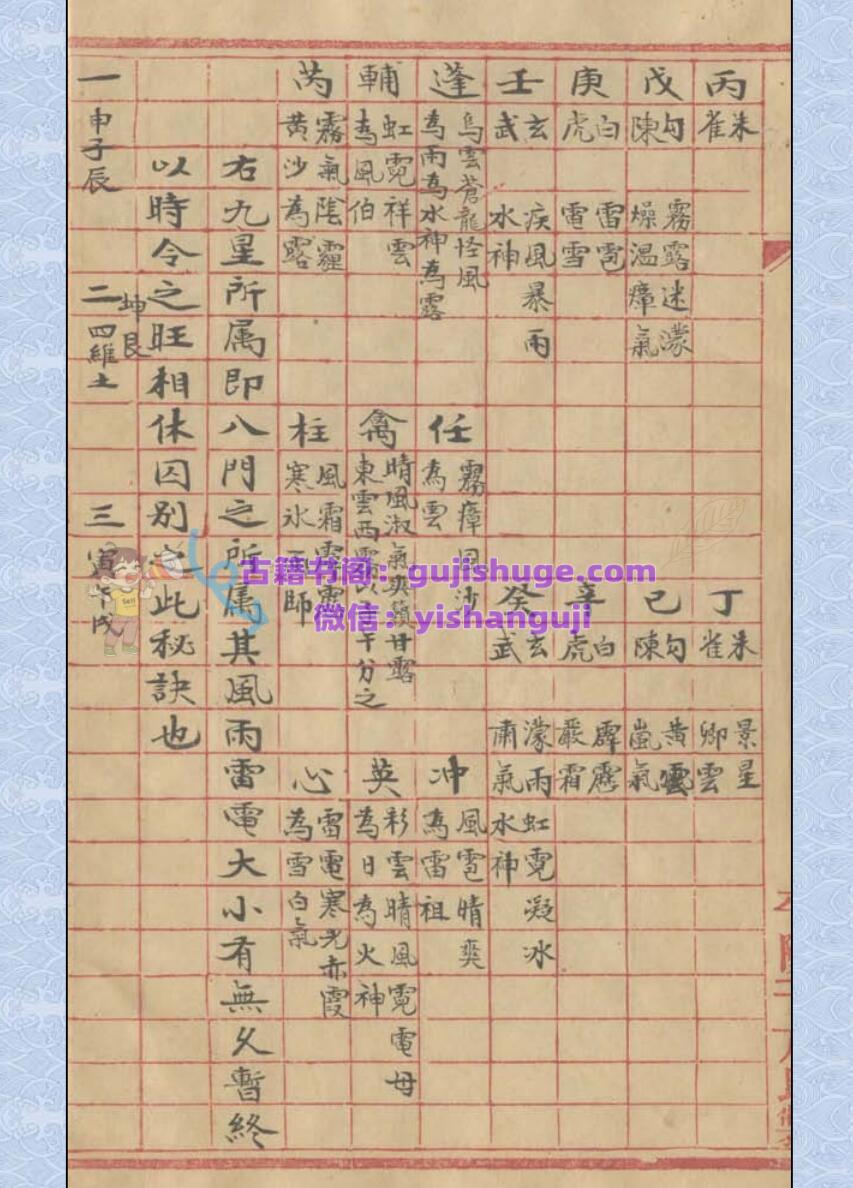 丙 朱雀 丁 朱雀 景星卿雲
戊 勾陳 霧露迷濛燥温瘴氣 己 勾陳 黄雲嵐氣
庚 白虎 雷雹電雪 辛 白虎 霹靂嚴霜
壬 玄武 疾風暴雨水神 癸 玄武 濛雨虹霓凝冰肅氣水神
蓬 烏雲蒼龍怪風為雨為水神為露 任 霧瘴風沙為雲 冲 風雹晴爽為雷祖
輔 虹霓祥雲為風伯 禽 晴風淑氣爽籟甘露東雲西霧以干分之 英 彩雲晴風霓電母為日為火神
芮 霧氣陰霾黄沙為露 柱 風霜寒冰師 心 雷電寒光赤霞為雪白氣
右九星所属即八門之所属其風雨雷電大小有無久暫終
以時令之旺相休囚别此秘訣也
一 申子辰 二 坤艮 四維土 三 寅午戌
古籍书阁：gujishuge.com
微信：yishanguji